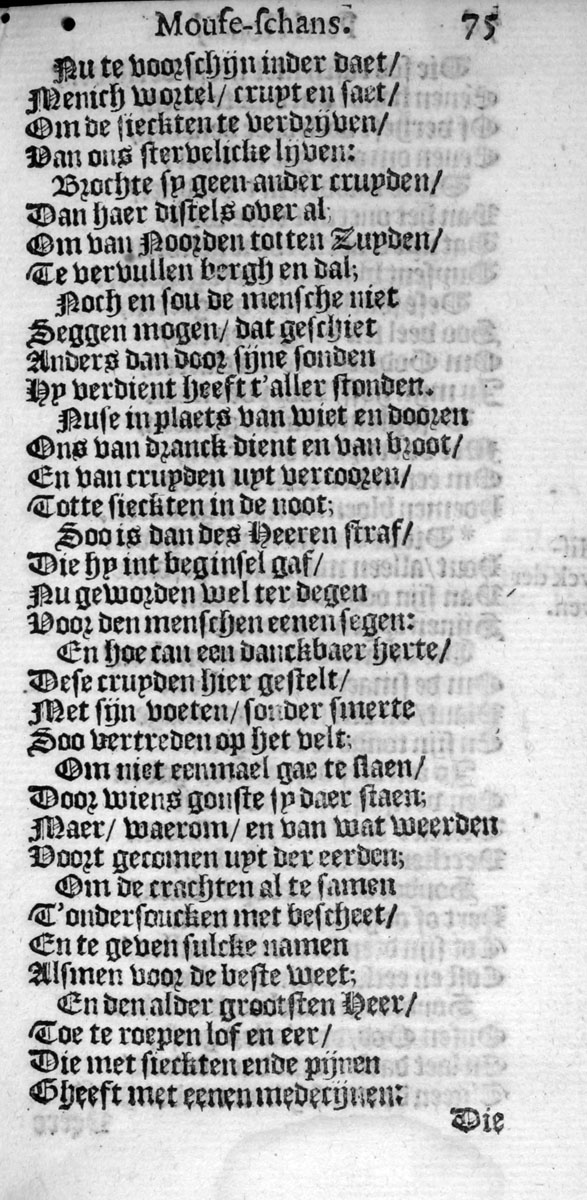 Mouse-schans. 75
Nu te voorschijn inder daet/
Menich wortel/ cruyt en saet/
Om de sieckten te verdrijven/
Van ons stervelicke lijven:
Brochte sy geen ander cruyden/
Dan haer distels over al,
Om van Noorden totten Zuyden/
Te vervullen bergh en dal;
Noch en sou de mensche niet
Seggen mogen/ dat geschiet
Anders dan door sijne sonden
Hy verdient heeft t'aller stonden.
Nuse in plaets van wiet en dooren
Ons van dranck dient en van broot/
En van cruyden uyt vercooren/
Totte sieckten in de noot;
Soo is dan des Heeren straf/
Die hy int beginsel gaf/
Nu geworden wel ter degen
Voor den menschen eenen segen:
En hoe can een danckbaer herte/
Dese cruyden hier gestelt/
Met sijn voeten/ sonder smerte
Soo vertreden op het velt;
Om niet eenmael gae te slaen/
Door wiens gonste sy daer staen;
Maer/ waerom/ en van wat weerden
Voort gecomen uyt der eerden;
Om de crachten al te samen
T'ondersoucken met bescheet/
En te geven sulcke namen
Alsmen voor de beste weet;
En den alder grootsten Heer/
Toe te roepen lof en eer/
Die met sieckten ende pijnen
Gheeft met eenen medecijnen:
Die